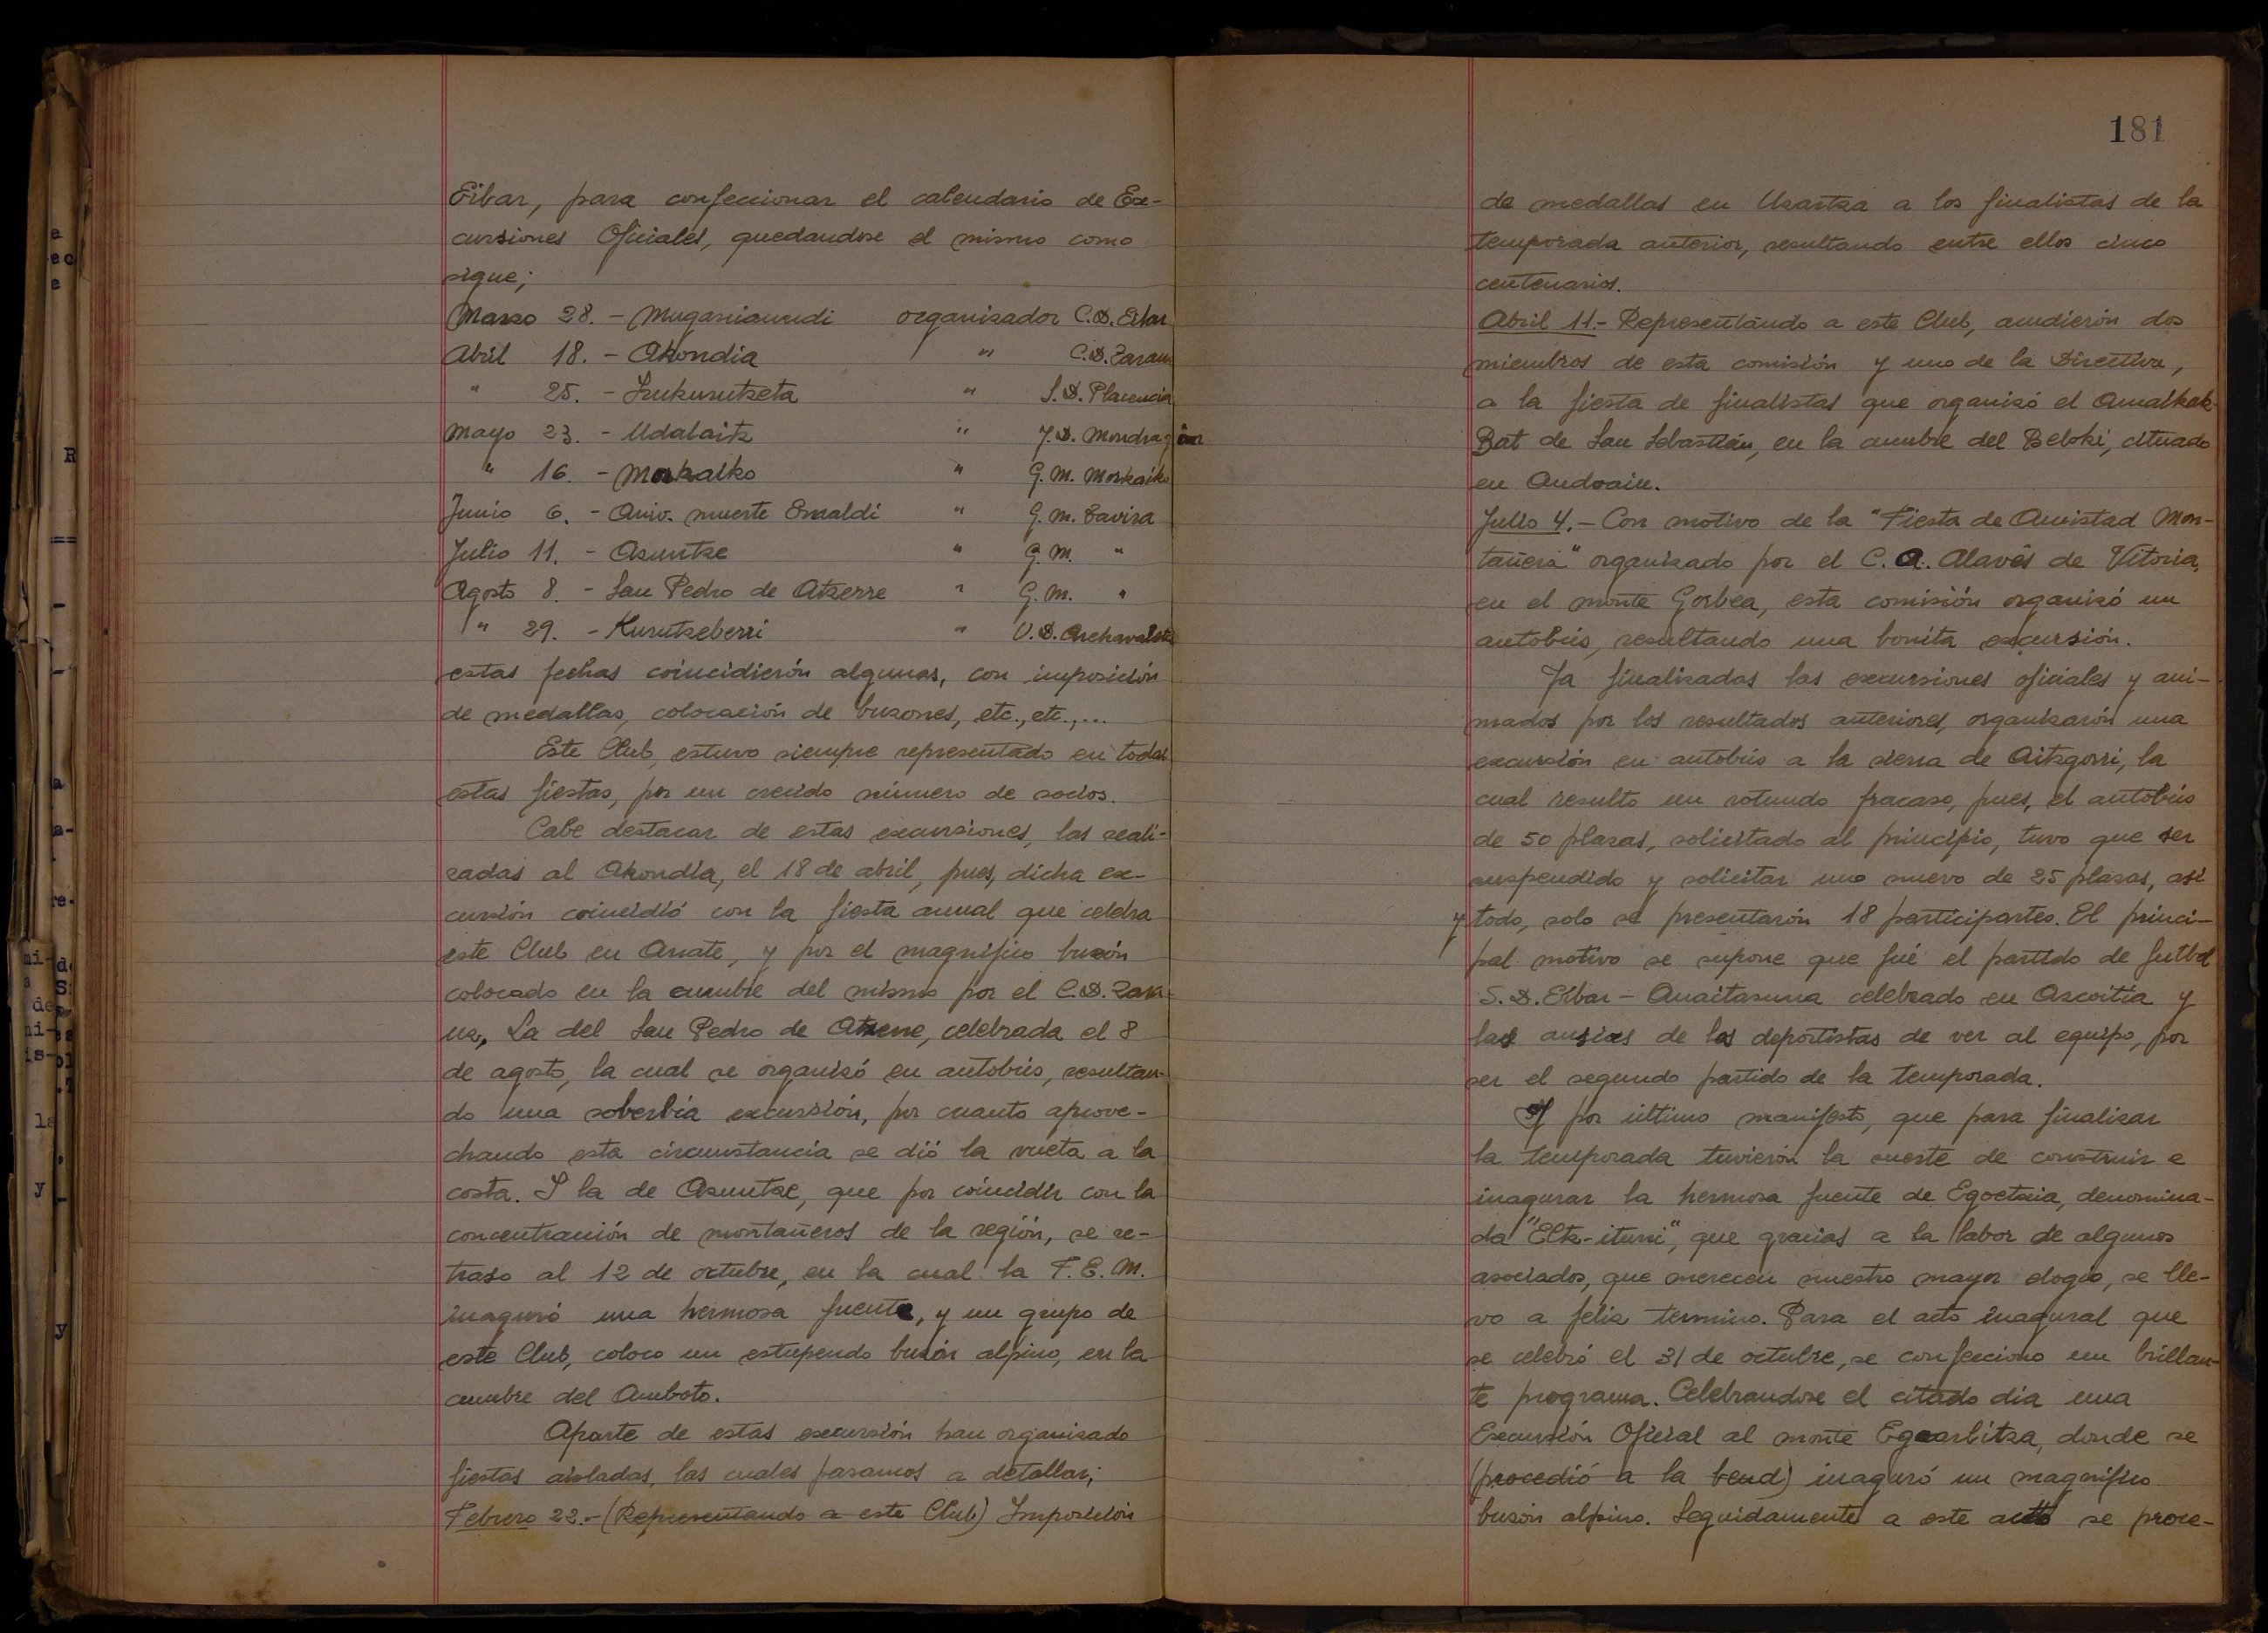 Eibar, para confeccionar el calendario de Ex-
cursiones Oficiales, quedandose el mismo como
sigue;
Marzo 28. - Muganiaundi organizador C.D. Eibar
Abril 18. - Akondia " C.D. Zarauz
" 25. - Irukurutzeta " S.D. Placencia
Mayo 23. - Udalaitz " J.D. Mondragón
" 16. - Morkaiko " G.M. Morkaiko
Junio 6. - Aniv. muerte Ernaldi " G.M. Tavira
Julio 11. - Asuntze " G.M. "
Agosto 8. - San Pedro de Atxerre " G.M. "
" 29. - Kurutzeberri " U.D. Arechavaleta
estas fechas coincidierón algunas, con imposición
de medallas, colocación de buzones, etc., etc.,...
Este Club, estuvo siempre representado en todas
estas fiestas, por un crecido número de socios.
Cabe destacar de estas excursiones, las reali-
zadas al Akondia, el 18 de abril, pues, dicha ex-
cursión coincidió con la fiesta anual que celebra
este Club en Arrate, y por el magnífico buzón
colocado en la cumbre del mismo por el C.D. Zarau
uz, La del San Pedro de Atxerre, celebrada el 8
de agosto, la cual se organizó en autobús, resultan-
do una soberbia excursión, por cuanto aprove-
chando esta circunstancia se dió la vueta a la
costa. Y la de Asuntze, que por coincidir con la
concentración de montañeros de la región, se re-
traso al 12 de octubre, en la cual la F.E.M.
inaguró una hermosa fuente, y un grupo de
este Club, coloco un estupendo buzón alpino, en la
cumbre del Amboto.
Aparte de estas excursión han organizado
fiestas aisladas, las cuales pasamos a detallar;
Febrero 22.- (Representando a este Club) Imposición
181
de medallas en Ukartza a los finalistas de la
temporada anterior, resultando entre ellos cinco
centenarios.
Abril 11.- Representando a este Club, acudierón dos
miembros de esta comisión y uno de la Directiva,
a la fiesta de finalistas que organizó el Amaikak-
Bat de San Sebastián, en la cumbre del Beloki, cituado
en Andoain.
Julio 4.- Con motivo de la "Fiesta de Amistad Mon-
tañera" organizado por el C.A. Alavés de Vitoria,
en el monte Gorbea, esta comisión organizó un
autobús, resultando una bonita excursión.
Ya finalizadas las excursiones oficiales y ani-
mados por los resultados anteriores, organizarón una
excursión en autobús a la sierra de Aitzgorri, la
cual resulto un rotundo fracaso, pues, el autobús
de 50 plazas, solicitado al principio, tuvo que ser
suspendido y solicitar uno nuevo de 25 plazas, asi
y todo, solo se presentarón 18 participantes. El princi-
pal motivo se supone que fué el partido de futbol
S.D. Eibar - Anaitasuna celebrado en Azcoitia y
las ansias de los deportistas de ver al equipo, por
ser el segundo partido de la temporada.
Y por último manifesto, que para finalizar
la temporada tuvierón la suerte de construir e
inagurar la hermosa fuente de Egoetxia, denomina-
da "Eltz-iturri", que gracias a la labor de algunos
asociados, que merecen nuestro mayor elogio, se lle-
vo a feliz termino. Para el acto inagural que
se celebró el 31 de octubre, se confecciono un brillan-
te programa. Celebrandose el citado dia una
Excursión Oficial al monte Egoarbitza, donde se
(procedió a la bend) inaguró un magnifico
buzón alpino. Seguidamente a este acto se proce-